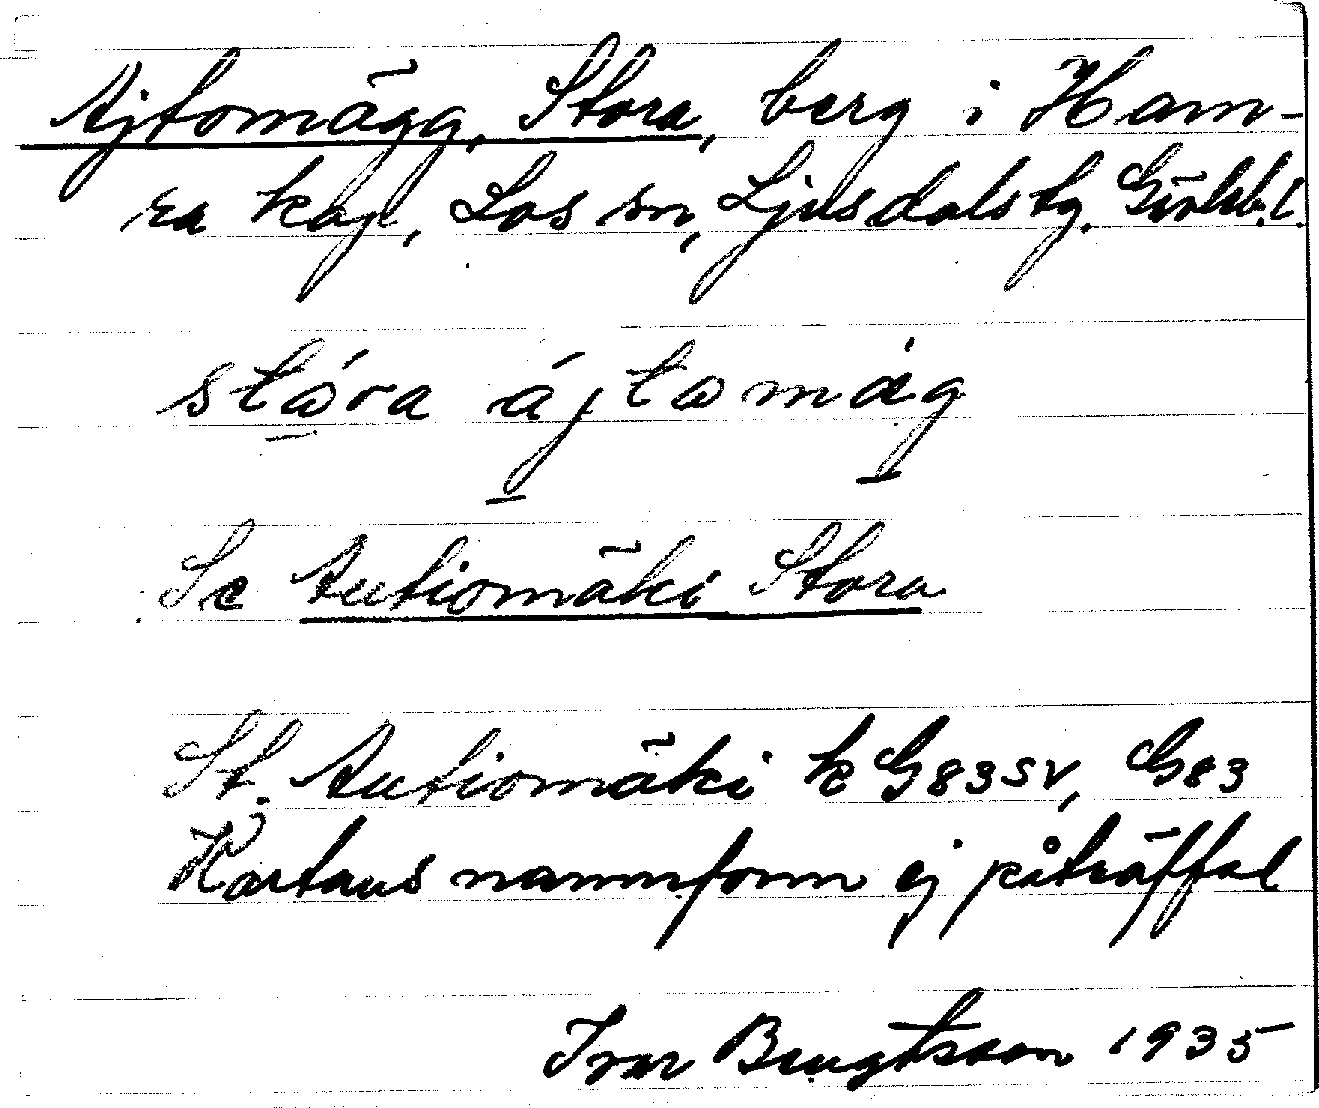 Ajtomägg, Stora, berg i Ham-
ra kap, Los sn, Ljusdals tg. Gävleb. l.
stóra ájtomäg
Se Autiomäki Stora
St. Autiomäki k G83SV, G83
Kartans namnform ej påträffad
Ivar Bengtsson 1935